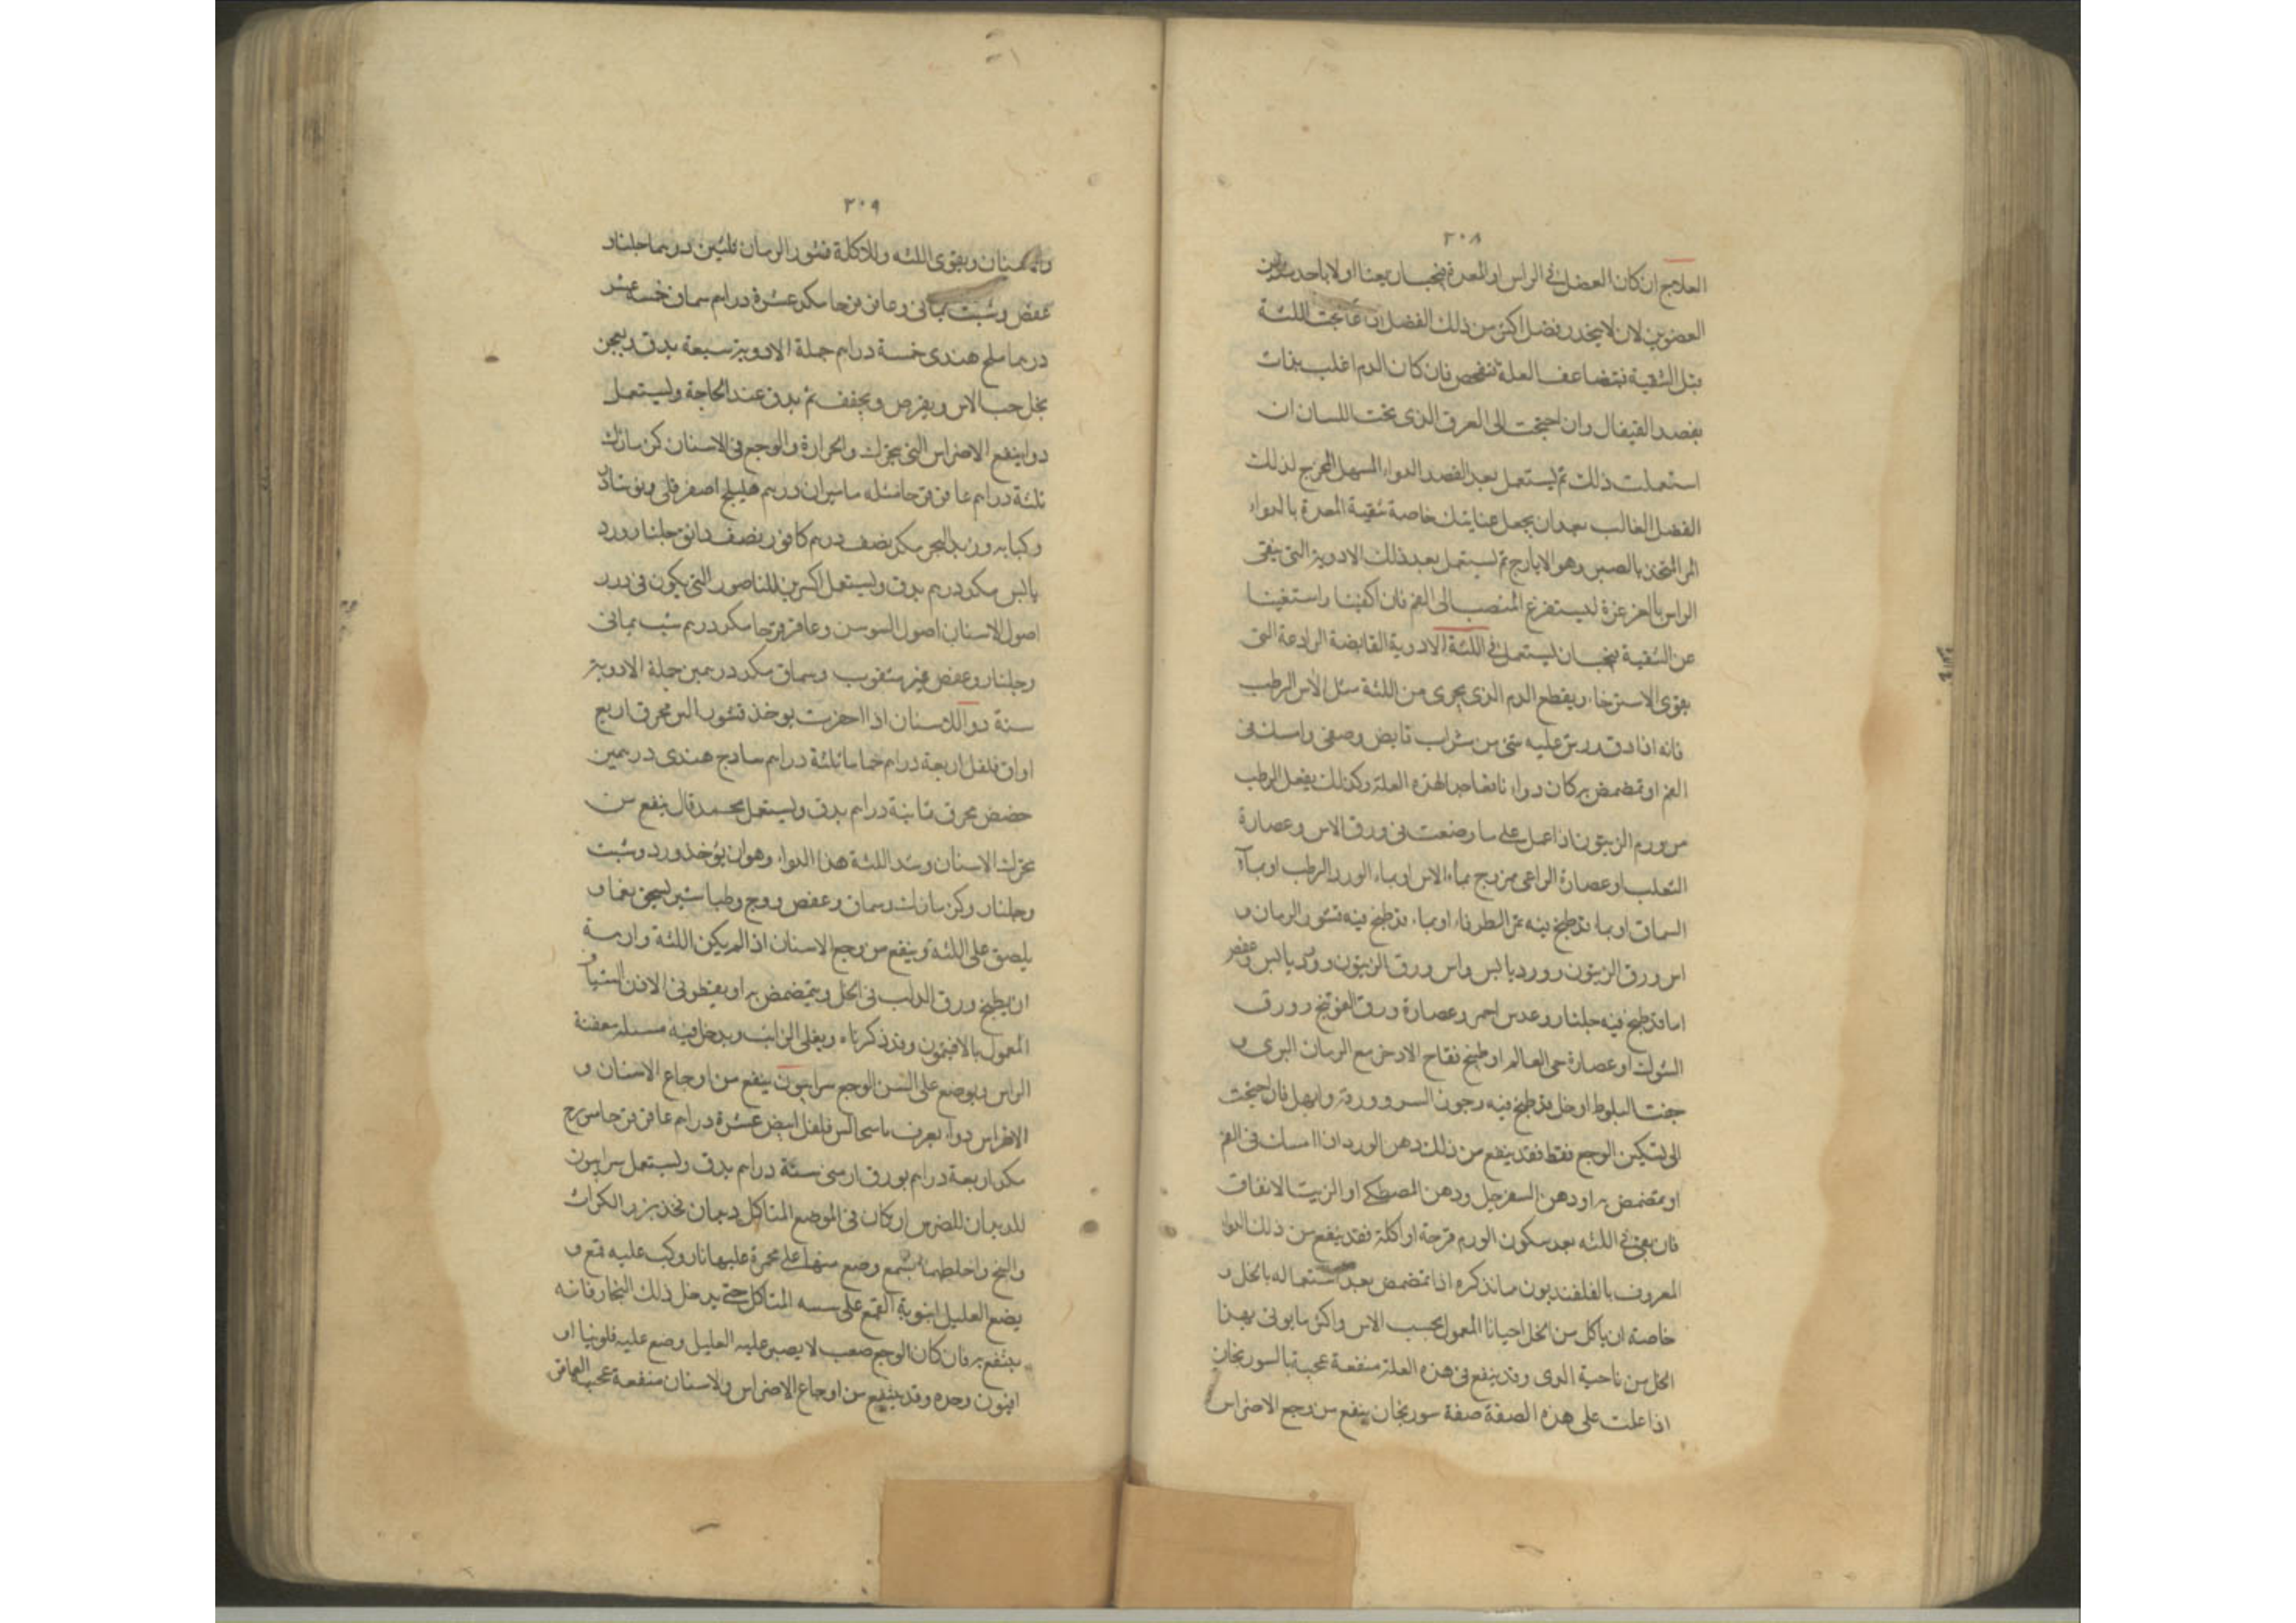 ٢٠٨
العلاج ان كان الفضل في الراس او المعدة فيجب ان يعنا اولا باحد هذين
العضوين لان لا يتحدر فضل اكثر من ذلك الفضل ان عالجت اللثة
قبل التنقية فتضاعف العلة فتفحص فان كان الدم اغلب بذات
بفصد القيفال وان احتجت الى العرق الذى تحت اللسان ان
استعملت ذلك ثم ليستعمل بعد الفصد الدواء المسهل المخرج لذلك
الفضل الغالب بعد ان يجعل عنايتك خاصة تنقية المعدة بالدواء
المر المتخذ بالصبر وهو الايارج ثم ليستعمل بعد ذلك الادوية التى ينقى
الراس بالغرغرة ليستفرغ المنصب الى الفم فان اكفينا واستغنينا
عن التنقية فيجب ان ليستعمل في اللثة الادوية القابضة الرادعة التى
يقوى الاسترخا، ويقطع الدم الذى يجرى من اللثة مثل الاس الرطب
فانه اذا دق ورش عليه شى من شراب قابض وصفى وامسك فى
الفم او تمضمض به كان دواء نافعا جدا لهذه العلة وكذلك يفعل الرطب
من ورم الزيتون اذا عمل على ما وصفت فى ورق الاس وعصارة
الثعلب او عصارة الراعى ممزوج بماء الاس او بماء الورد الرطب او بماء
السماق او بماء قد طبخ فيه ثمر الطرفاء او بماء قد طبخ فيه قشور الرمان و
اس ورق الزيتون وورد يابس واس ورق الزيتون وورد يابس وعفص
اما قد طبخ فيه جلنار وعدس احمر وعصارة ورق العوسج وورق
الشوك او عصارة حى العالم او طبيخ فقاح الاذخر مع الرمان البرى و
جفت البلوط او خل قد طبخ فيه وجوز السرو وورقه وابهل فان احتجت
الى تسكين الوجع فقط فقد ينفع من ذلك دهن الورد اذا امسك فى الفم
او تمضمض به او دهن السفرجل ودهن المصطكى او الزيت الانفاق
فان بقى في اللثه بعد سكون الورم قرحة او اكلة فقد ينفع من ذلك الدواء
المعروف بالفلفنديون ما نذكره اذا تمضمض بعد استعماله بالخل و
خاصة ان ياكل من الخل احيانا المعمول بحب الاس واكثر ما يوتى بهذا
الخل من ناحية الرى وقد ينفع فى هذه العلة منفعة عجيبة بالسورنجان
اذا عملت على هذه الصفة صفة سورنجان ينفع من وجع الاضراس
٢٠٩
والاسنان ويقوى اللثه والاكلة قشور الرمان ثلثين درهما جلنار
عفص وشبت يمانى وعاقرقرحا مكد عشرة دراهم سماق خمسة عشر
درهما ملح هندى خمسة دراهم جملة الادوية سبعة يدق ويعجن
بخل حب الاس ويقرص ويجفف ثم يدق عند الحاجة وليستعمل
دوا ينفع الاضراس التى تتحرك والحرارة والوجع فى الاسنان كزمازك
ثلثة دراهم عاقرقرحا مثله ماميران درهم هليلج اصفر قلى ونوشادر
وكبابه وزبد البحر مكد نصف درهم كافور نصف دانق جلنار وورد
يابس مكد درهم يدق وليستعمل اكسرين للناصور التى يكون فى درر
اصول الاسنان اصول السوسن وعاقرقرحا مكد درهم شب يمانى
وجلنار وعفص غير مثقوب وسماق مكد درهمين جملة الادوية
ستة دوا للاسنان اذا احفرت يوخذ قشور البر محرق اربع
اواق فلفل اربعة دراهم حماما ثلثة دراهم سادج هندى درهمين
حضض محرق ثمانية دراهم يدق وليستعمل محمد قال ينفع من
تحرك الاسنان وشد اللثة هذا الدواء وهو ان يوخذ ورد وشبت
وجلنار وكزمازك وسماق وعفص وروج وطباشير ليسحق نعما و
يلصق على اللثة وينفع من وجع الاسنان اذا لم يكن اللثة وارمة
ان يطبخ ورق الدلب فى الخل ويتمضمض به او يقطر فى الاذن الشياف
المعمول بالافيون وقد ذكرناه ويغلى الزيت ويدخل فيه مسلة معقفة
الراس ويوضع على السن الوجع سرابيون ينفع من اوجاع الاسنان و
الاضراس دواء يعرف باسحالس فلفل ابيض عشرة دراهم عاقرقرحا ميويزج
مكد اربعة دراهم بورق ارمنى ستة دراهم يدق وليستعمل سرابيون
للديدان للضرس ان كان فى الموضع المتاكل ديدان فخذ بزر الكراث
والبنج واخلطهما بشمع وضع منهما على مجمرة عليها نار وكب عليه قمع و
يضع العليل انبوبة القمع على سنه المتاكل حتى يدخل ذلك البخار فانه
ينتفع به فان كان الوجع صعب لا يصبر عليه العليل وضع عليه فلونيا او
افيون وحده وقد ينتفع من اوجاع الاضراس والاسنان منفعة عجيبة العاقر